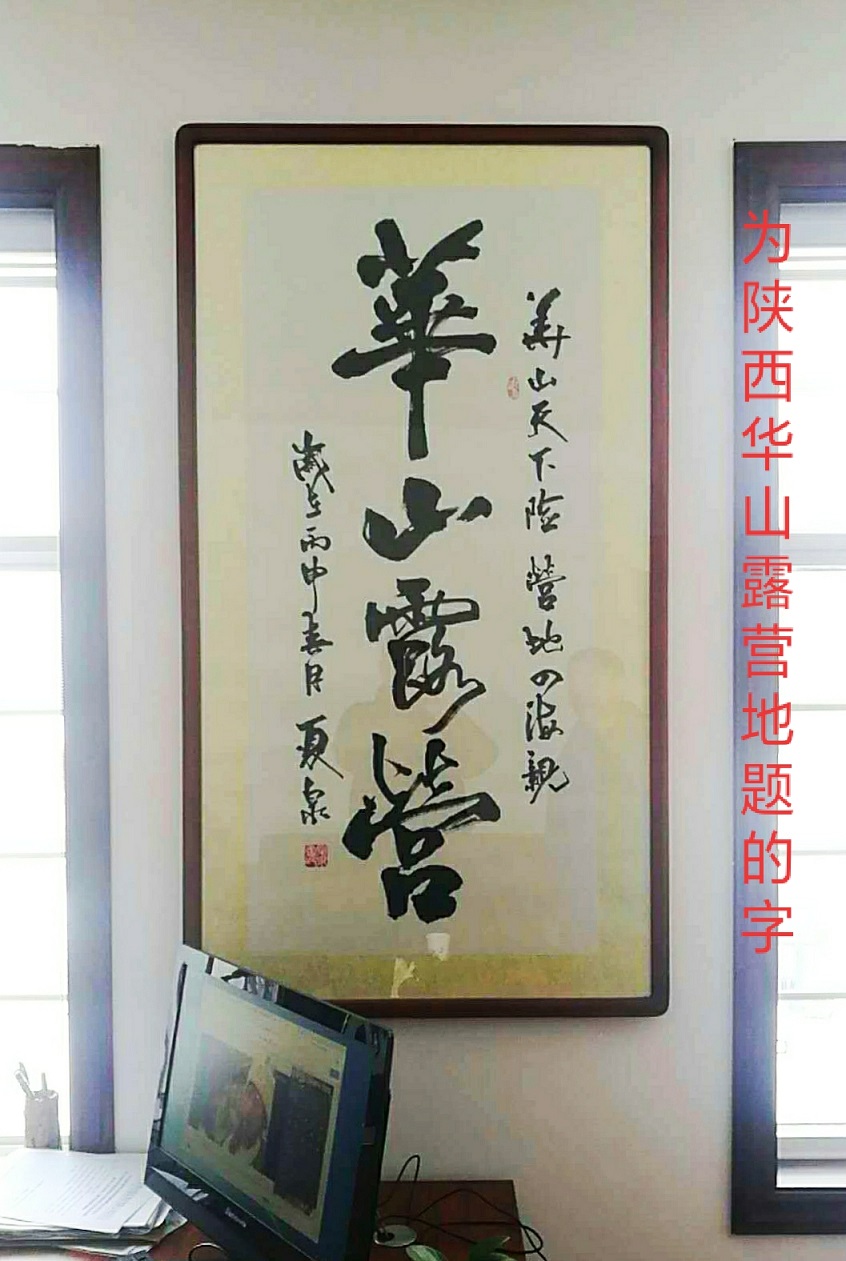 为陕西华山露营地题的字
華山天下险 營地四海親
華山露營
歲在丙申春月 夏泉